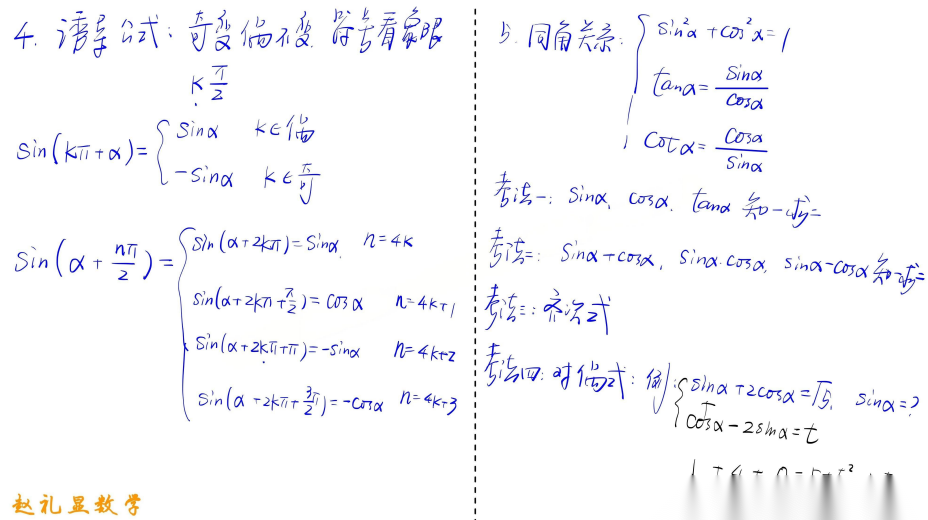 4. 诱导公式：奇变偶不变 符号看象限
k π/2
sin(kπ+α)= { sinα k∈偶
-sinα k∈奇
sin(α+nπ/2)= { sin(α+2kπ)=sinα, n=4k
sin(α+2kπ+π/2)=cosα n=4k+1
sin(α+2kπ+π)=-sinα n=4k+2
sin(α+2kπ+3π/2)=-cosα n=4k+3
赵礼显数学
5. 同角关系: { sin²α+cos²α=1
tanα= sinα/cosα
cotα= cosα/sinα
考法一: sinα、cosα、tanα 知一求二
考法二: sinα+cosα, sinα·cosα, sinα-cosα 知一求二
考法三: 齐次式
考法四: 对偶式: 例: { sinα+2cosα=√5, sinα=?
cosα-2sinα=t